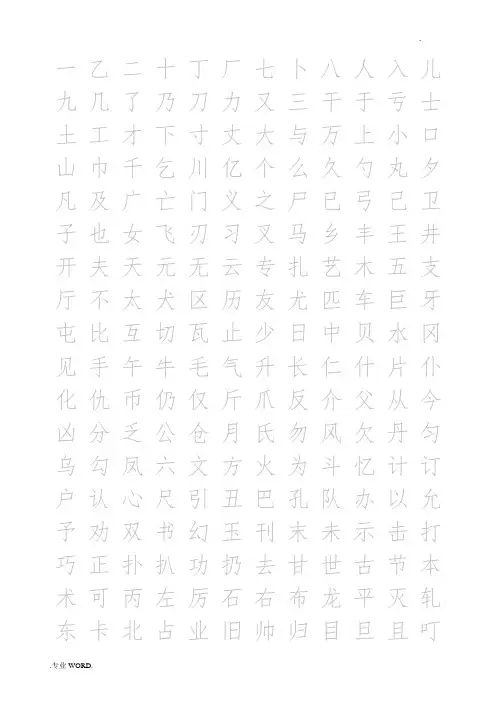 .
一乙二十丁厂七卜八人入儿
九几了乃刀力又三干于亏士
土工才下寸丈大与万上小口
山巾千乞川亿个么久勺丸夕
凡及广亡门义之尸已弓己卫
子也女飞刃习叉马乡丰王井
开夫天元无云专扎艺木五支
厅不太犬区历友尤匹车巨牙
屯比互切瓦止少日中贝水冈
见手午牛毛气升长仁什片仆
化仇币仍仅斤爪反介父从今
凶分乏公仓月氏勿风欠丹匀
乌勾凤六文方火为斗忆计订
户认心尺引丑巴孔队办以允
予劝双书幻玉刊末未示击打
巧正扑扒功扔去甘世古节本
术可丙左厉石右布龙平灭轧
东卡北占业旧帅归目旦且叮
.专业 WORD.